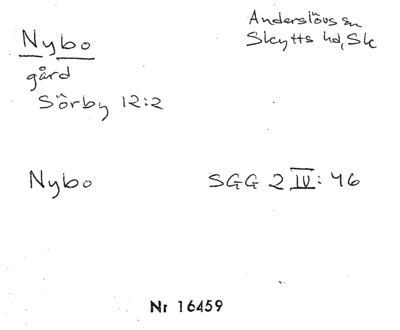 Nybo
Anderslövs sn
Skytts hd, Sk
gård
Sörby 12:2
Nybo
SGG 2 IV: 46
Nr 16459